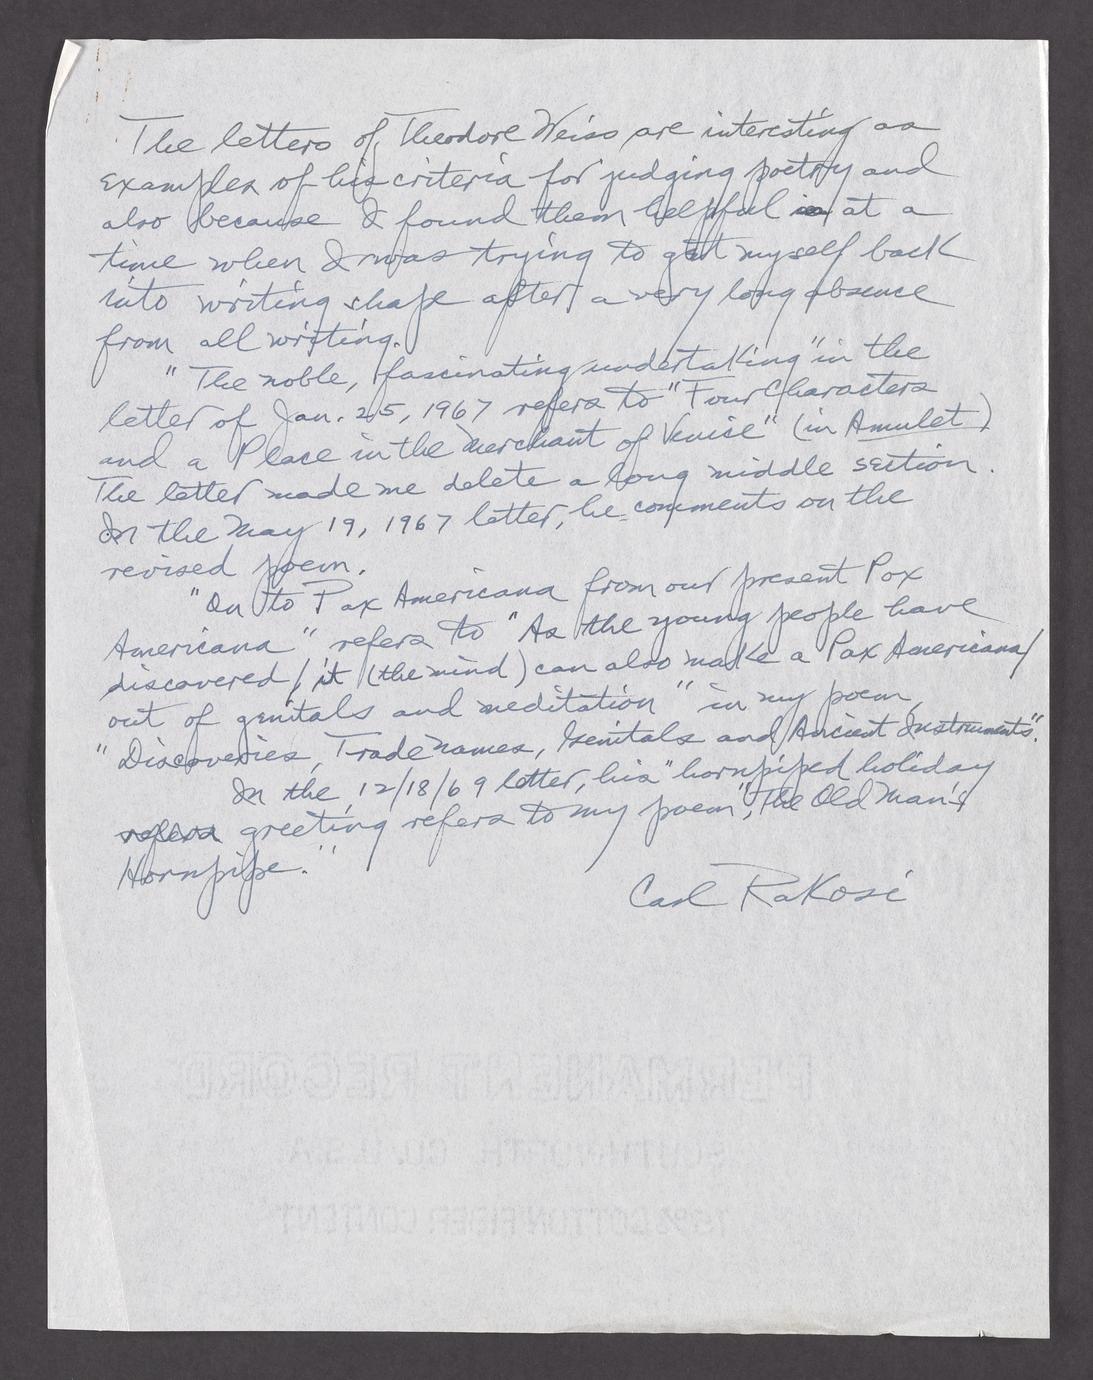 The letters of Theodore Weiss are interesting as
examples of his criteria for judging poetry and
also because I found them helpful at a
time when I was trying to get myself back
into writing shape after a very long absence
from all writing.
"The noble, fascinating undertaking" in the
letter of Jan. 25, 1967 refers to "Four Characters
and a Place in the Merchant of Venice" (in Amulet)
The letter made me delete a long middle section.
In the May 19, 1967 letter, he comments on the
revised poem.
"On to Pax Americana from our present Pox
Americana" refers to "As the young people have
discovered / it (the mind) can also make a Pax Americana/
out of genitals and meditation" in my poem,
"Discoveries, Trade Names, Genitals and Ancient Instruments".
In the 12/18/69 letter, his "hornpiped holiday
refers greeting refers to my poem, "The Old Man's
Hornpipe."
Carl Rakosi
PERMANENT RECORD
SOUTHWORTH CO. U.S.A.
COTTON FIBER CONTENT